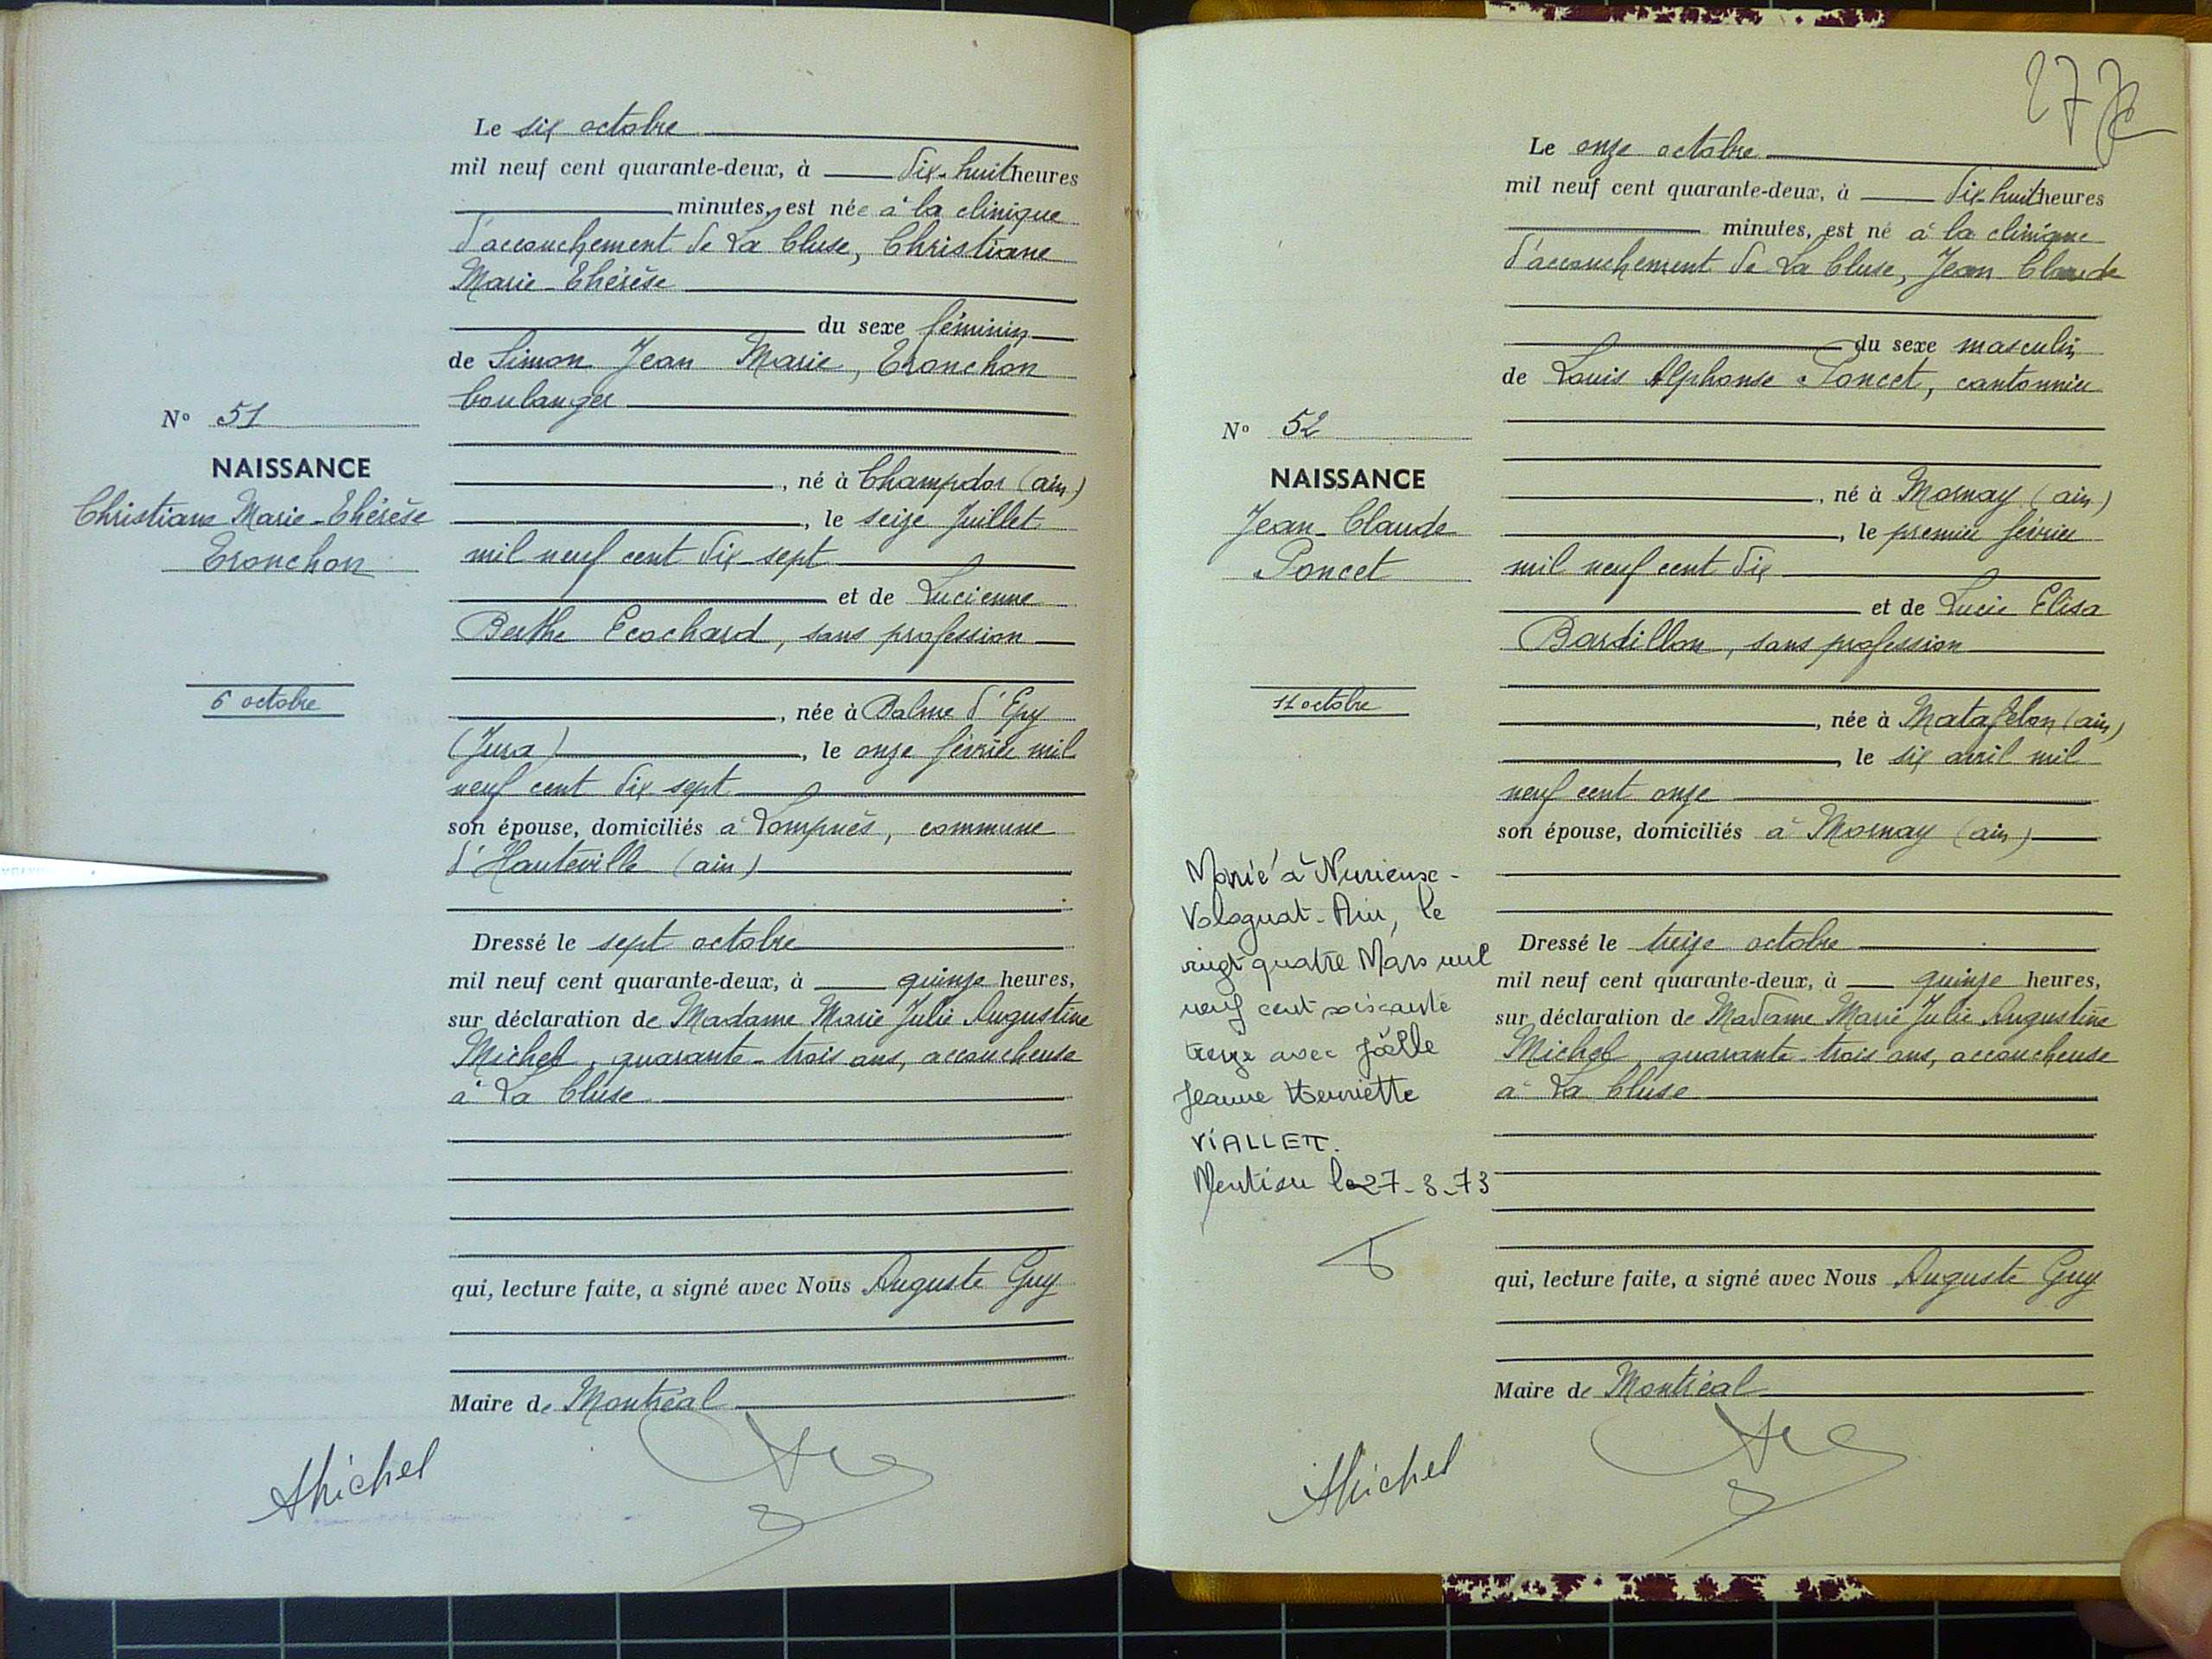 Le six octobre
mil neuf cent quarante-deux, à dix-huit heures
minutes, est née à la clinique
d'accouchement de La Cluse, Christiane
Marie-Thérèse
du sexe féminin
de Simon Jean Marie, Tronchon
boulanger
N° 51
NAISSANCE
Christiane Marie-Thérèse
Tronchon
6 octobre
, né à Champdor (ain)
, le seize Juillet
mil neuf cent dix-sept
et de Lucienne
Berthe Ecochard, sans profession
, née à Balme d'Epy
(Jura), le onze février mil
neuf cent dix sept
son épouse, domiciliés à Lompnès, commune
d'Hauteville (ain)
Dressé le sept octobre
mil neuf cent quarante-deux, à quinze heures,
sur déclaration de Madame Marie Julie Augustine
Michel, quarante-trois ans, accoucheuse
à La Cluse
qui, lecture faite, a signé avec Nous Auguste Guy
Maire de Montréal
Michel
27
Le onze octobre
mil neuf cent quarante-deux, à dix-huit heures
minutes, est né à la clinique
d'accouchement de La Cluse, Jean Claude
du sexe masculin
de Louis Alphonse Poncet, cantonnier
N° 52
NAISSANCE
Jean-Claude
Poncet
11 octobre
, né à Mornay (ain)
, le premier février
mil neuf cent dix
et de Lucie Elisa
Bardillon, sans profession
, née à Matafelon (ain)
, le six avril mil
neuf cent onze
son épouse, domiciliés à Mornay (ain)
Marié à Nurieux-
Volognat-Ain, le
vingt quatre Mars mil
neuf cent soixante
treize avec Joëlle
Jeanne Henriette
VIALLET.
Mention le 27-3-73
Dressé le treize octobre
mil neuf cent quarante-deux, à quinze heures,
sur déclaration de Madame Marie Julie Augustine
Michel, quarante-trois ans, accoucheuse
à La Cluse
qui, lecture faite, a signé avec Nous Auguste Guy
Maire de Montréal
Michel